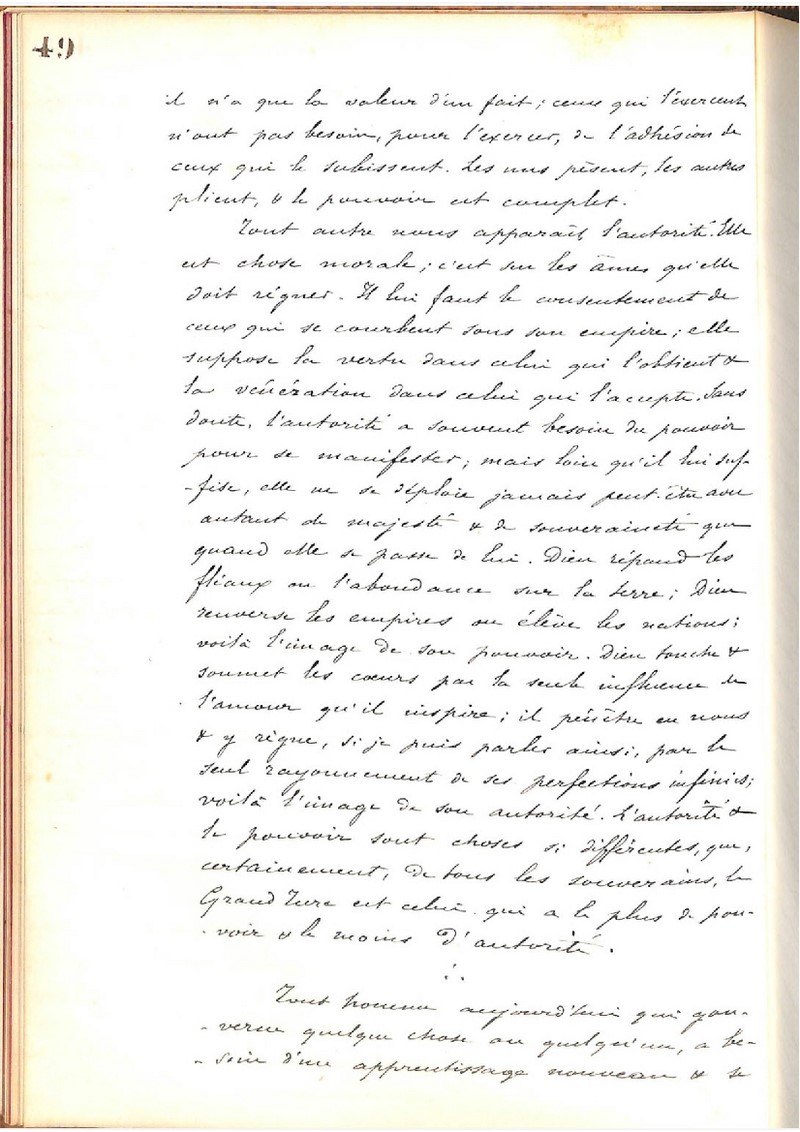 49
il n'a que la valeur d'un fait ; ceux qui l'exercent
n'ont pas besoin, pour l'exercer, de l'adhésion de
ceux qui le subissent. Les uns pèsent, les autres
plient, & le pouvoir est complet.
Tout autre nous apparaît l'autorité. Elle
est chose morale ; c'est sur les âmes qu'elle
doit régner. Il lui faut le consentement de
ceux qui se courbent sous son empire ; elle
suppose la vertu dans celui qui l'obtient &
la vénération dans celui qui l'accepte. Sans
doute, l'autorité a souvent besoin du pouvoir
pour se manifester ; mais loin qu'il lui suf-
-fise, elle ne se déploie jamais peut-être avec
autant de majesté & de souveraineté que
quand elle se passe de lui. Dieu répand les
fléaux ou l'abondance sur la terre ; Dieu
renverse les empires ou élève les nations ;
voilà l'image de son pouvoir. Dieu touche &
soumet les cœurs par la seule influence de
l'amour qu'il inspire ; il pénètre en nous
& y règne, si je puis parler ainsi, par le
seul rayonnement de ses perfections infinies ;
voilà l'image de son autorité. L'autorité &
le pouvoir sont choses si différentes, que,
certainement, de tous les souverains, le
Grand Turc est celui qui a le plus de pou-
-voir & le moins d'autorité.
∴
Tout homme aujourd'hui qui gou-
-verne quelque chose ou quelqu'un, a be-
-soin d'un apprentissage nouveau & se